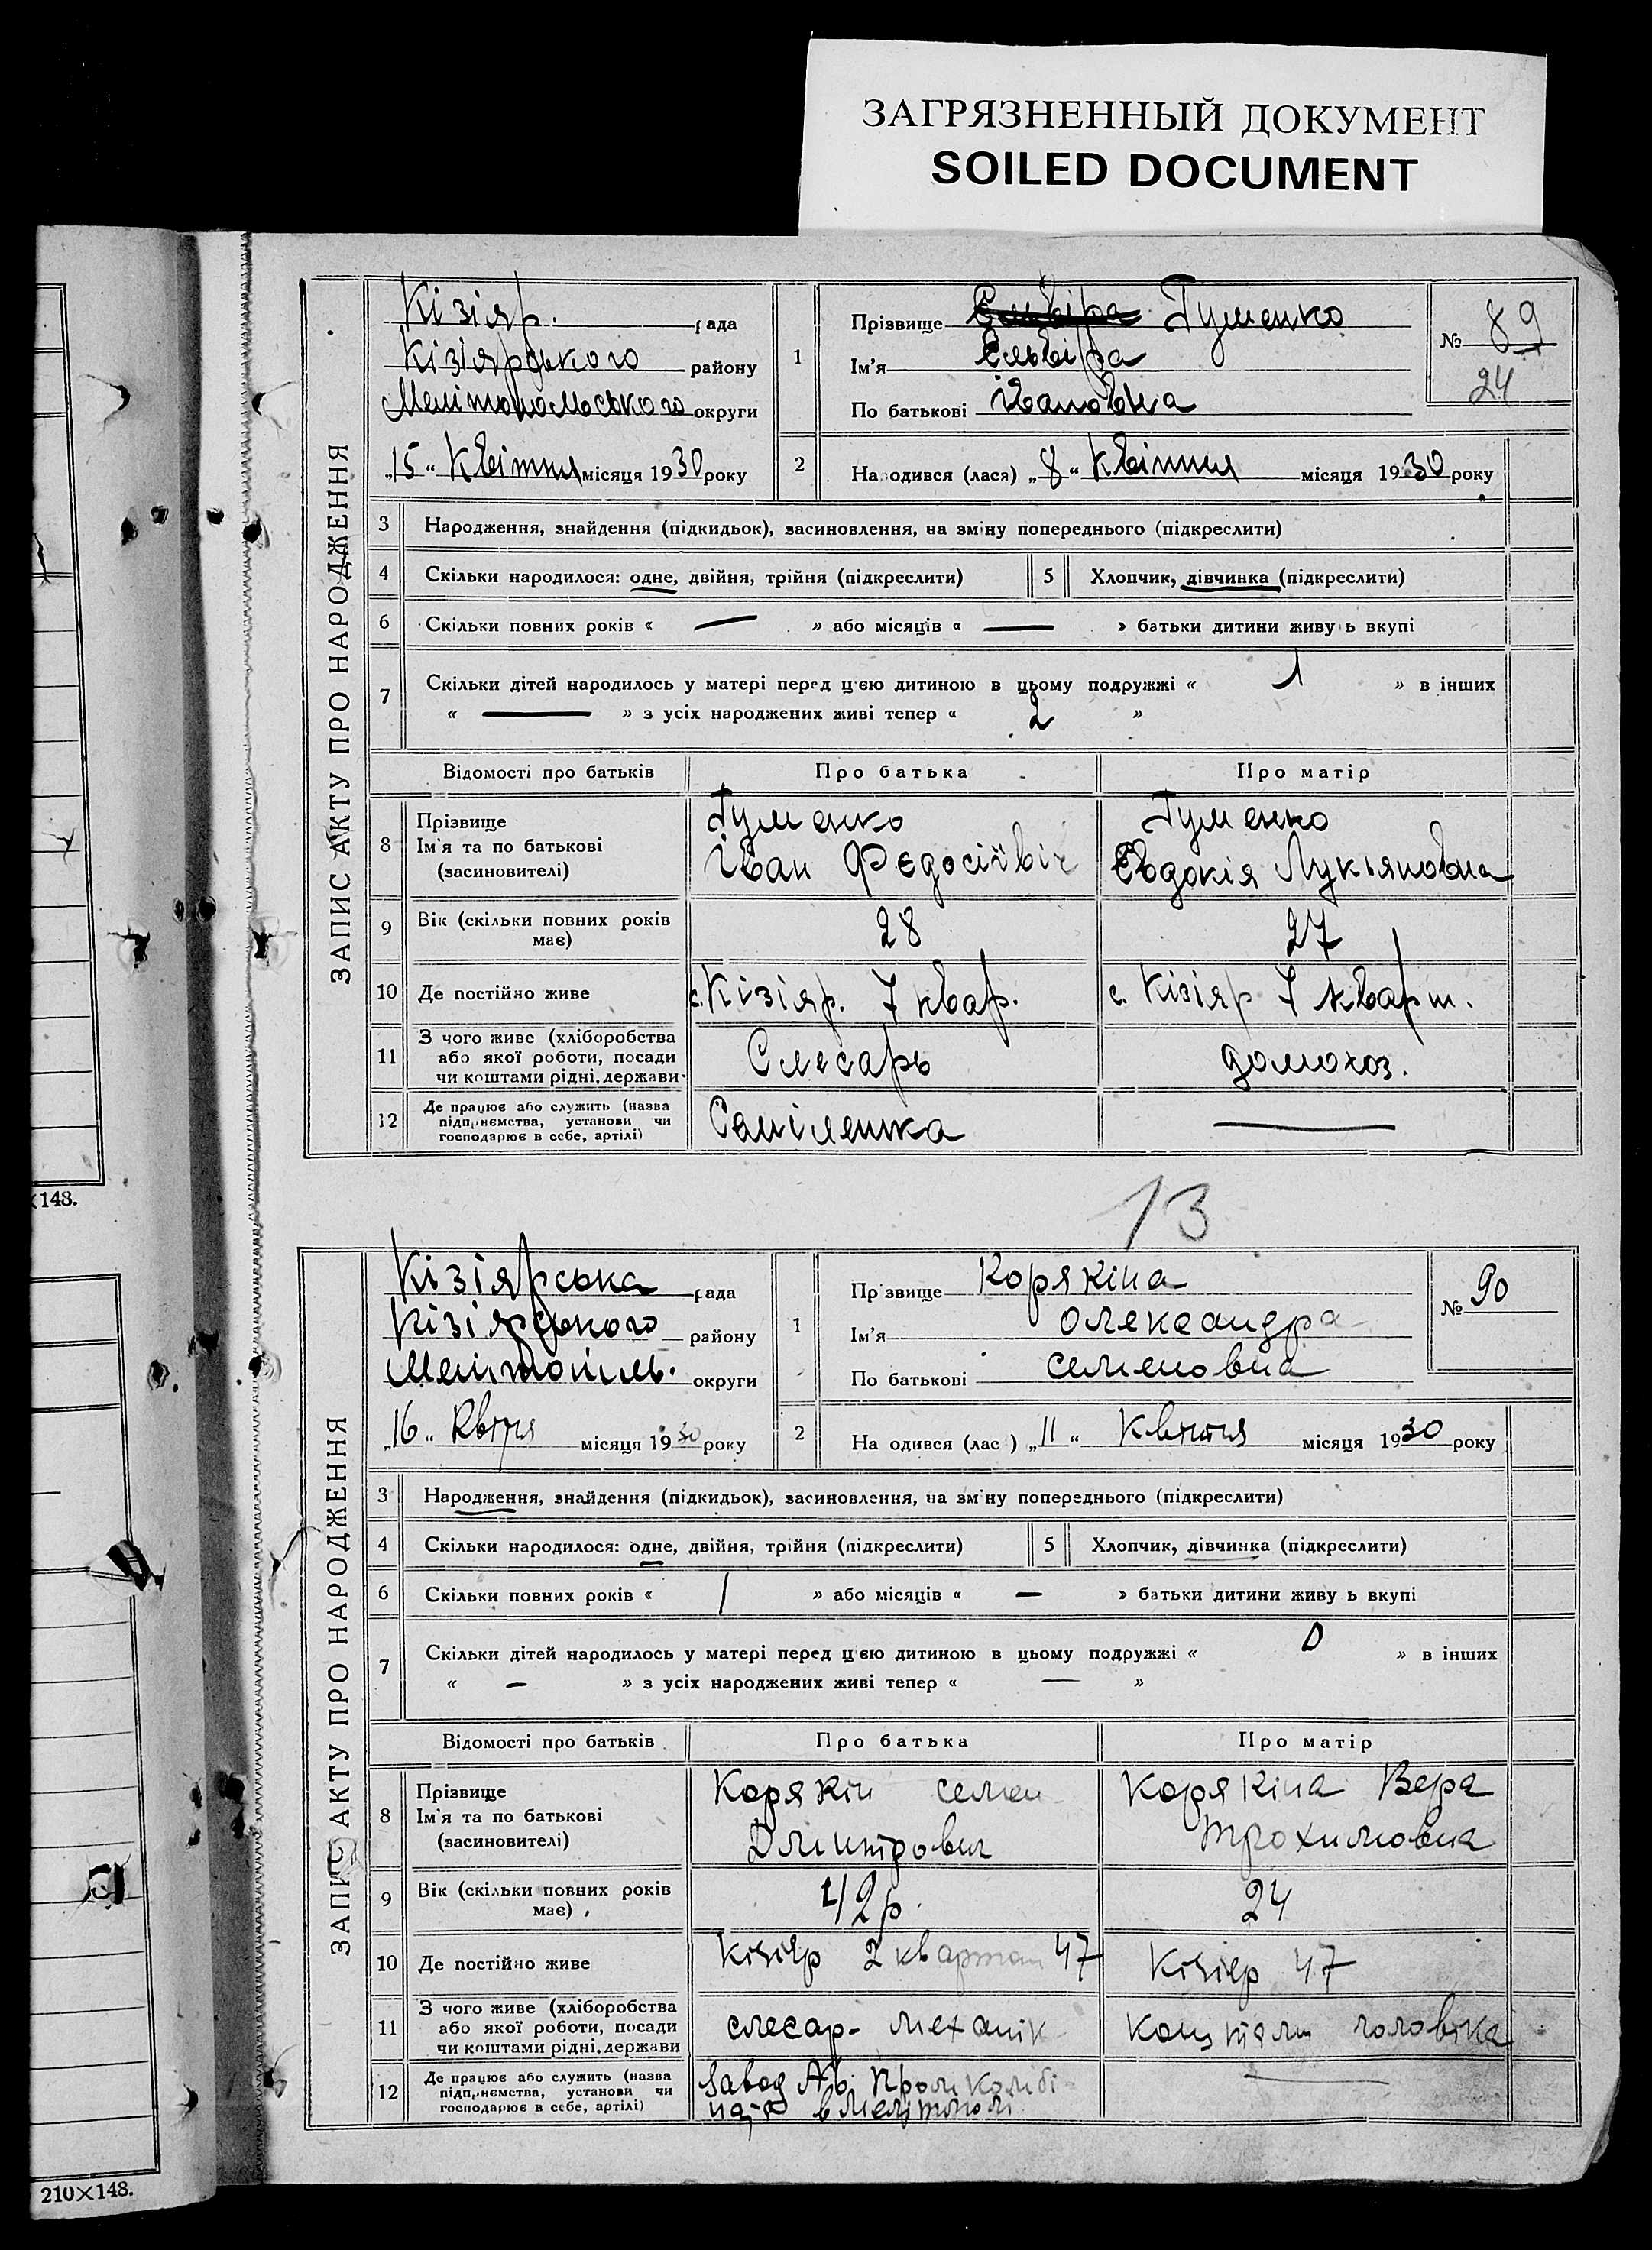 ЗАГРЯЗНЕННЫЙ ДОКУМЕНТ
SOILED DOCUMENT
ЗАПИС АКТУ ПРО НАРОДЖЕННЯ
Кізіяр. рада
Кізіярського району
Мелітопольського округи
„15“ Квітня місяця 1930 року
1
Прізвище Гуменко
Ім'я Ельвіра
По батькові Івановна
№ 89
24
2 Народився (лася) „8“ Квітня місяця 1930 року
3 Народження, знайдення (підкидьок), засиновлення, на зміну попереднього (підкреслити)
4 Скільки народилося: одне, двійня, трійня (підкреслити) 5 Хлопчик, дівчинка (підкреслити)
6 Скільки повних років « — » або місяців « — » батьки дитини живуть вкупі
7 Скільки дітей народилось у матері перед цією дитиною в цьому подружжі « 1 » в інших
« — » з усіх народжених живі тепер « 2 »
Відомості про батьків Про батька Про матір
8 Прізвище
Ім'я та по батькові
(засиновителі)
Гуменко
Іван Федосіївіч
Гуменко
Евдокія Лукьяновна
9 Вік (скільки повних років
має)
28 27
10 Де постійно живе с. Кізіяр. 7 квар. с. Кізіяр 7 кварт.
11 З чого живе (хліборобства
або якої роботи, посади
чи коштами рідні, держави
Слесарь домохоз.
12 Де працює або служить (назва
підприємства, установи чи
господарює в себе, артілі)
—
13
×148.
ЗАПИС АКТУ ПРО НАРОДЖЕННЯ
Кізіярська рада
Кізіярського району
Мелітопіль. округи
„16“ Квітня місяця 1930 року
1
Прізвище Корякіна
Ім'я Олександра
По батькові Семеновна
№ 90
2 На одився (лас ) „11“ Квітня місяця 1930 року
3 Народження, знайдення (підкидьок), засиновлення, на зміну попереднього (підкреслити)
4 Скільки народилося: одне, двійня, трійня (підкреслити) 5 Хлопчик, дівчинка (підкреслити)
6 Скільки повних років « 1 » або місяців « — » батьки дитини живу ь вкупі
7 Скільки дітей народилось у матері перед цією дитиною в цьому подружжі « 0 » в інших
« — » з усіх народжених живі тепер « — »
Відомості про батьків Про батька Про матір
8 Прізвище
Ім'я та по батькові
(засиновителі)
Корякін Семен
Дмитрович
Корякіна Вера
Трохимовна
9 Вік (скільки повних років
має)
42 р. 24
10 Де постійно живе Кізіяр 2 квартал 47 Кізіяр 47
11 З чого живе (хліборобства
або якої роботи, посади
чи коштами рідні, держави
слесар-механік коштами чоловіка
12 Де працює або служить (назва
підприємства, установи чи
господарює в себе, артілі)
Завод
в Мелітополі
210×148.